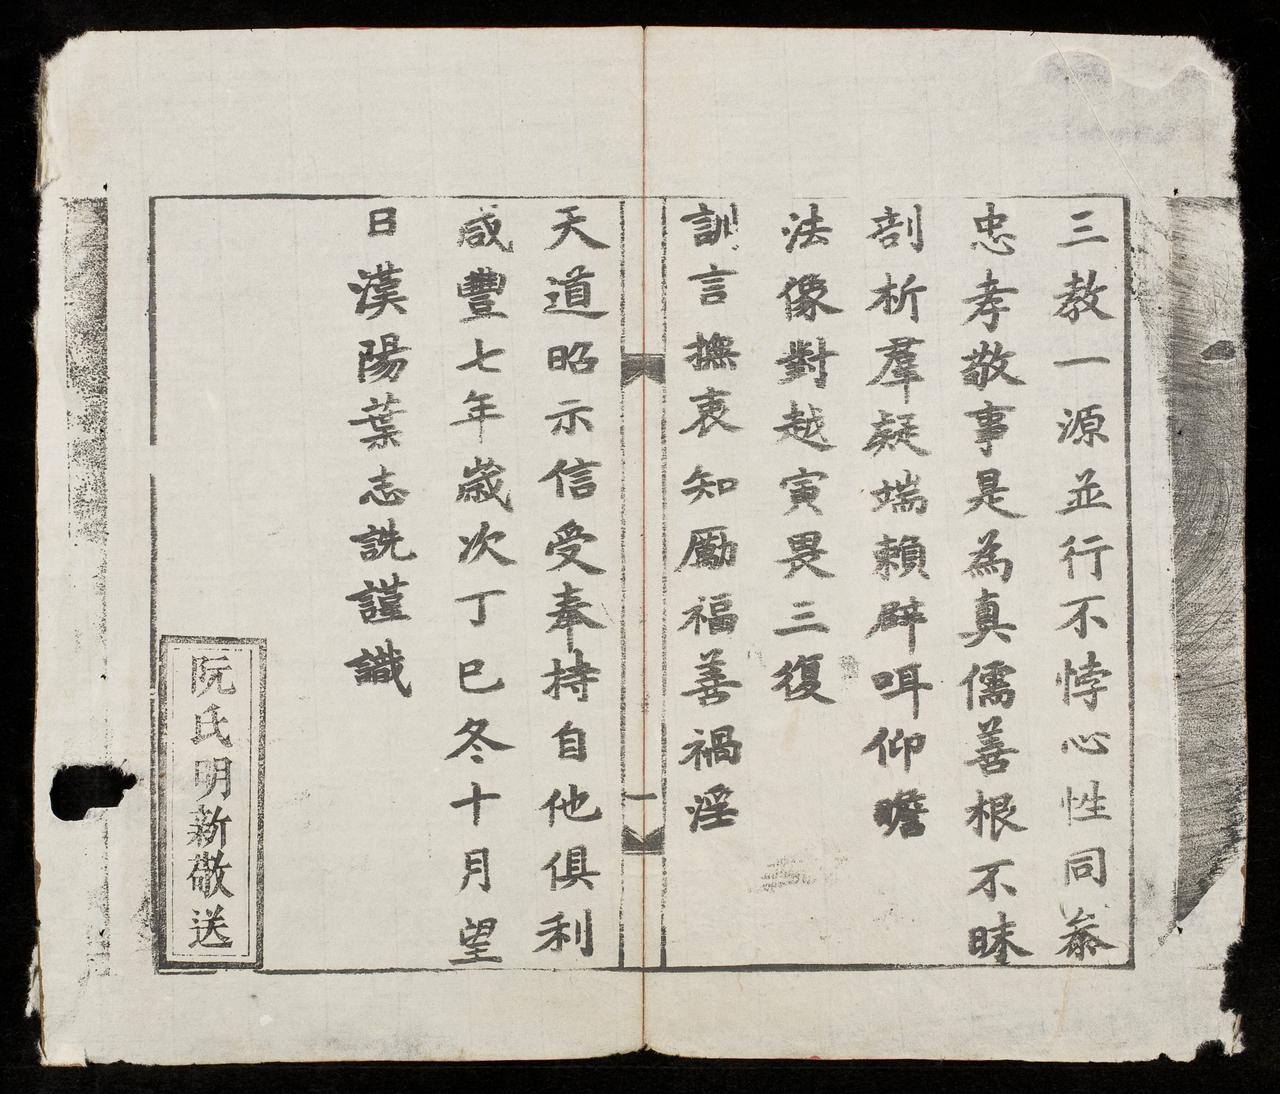 三教一源並行不悖心性同叅
忠孝敬事是為真儒善根不昧
剖析羣疑端賴辟咡仰瞻
法像對越寅畏三復
訓言撫衷知勵福善禍淫
一
天道昭示信受奉持自他俱利
咸豐七年歲次丁巳冬十月望
日漢陽葉志詵謹識
阮氏明新敬送